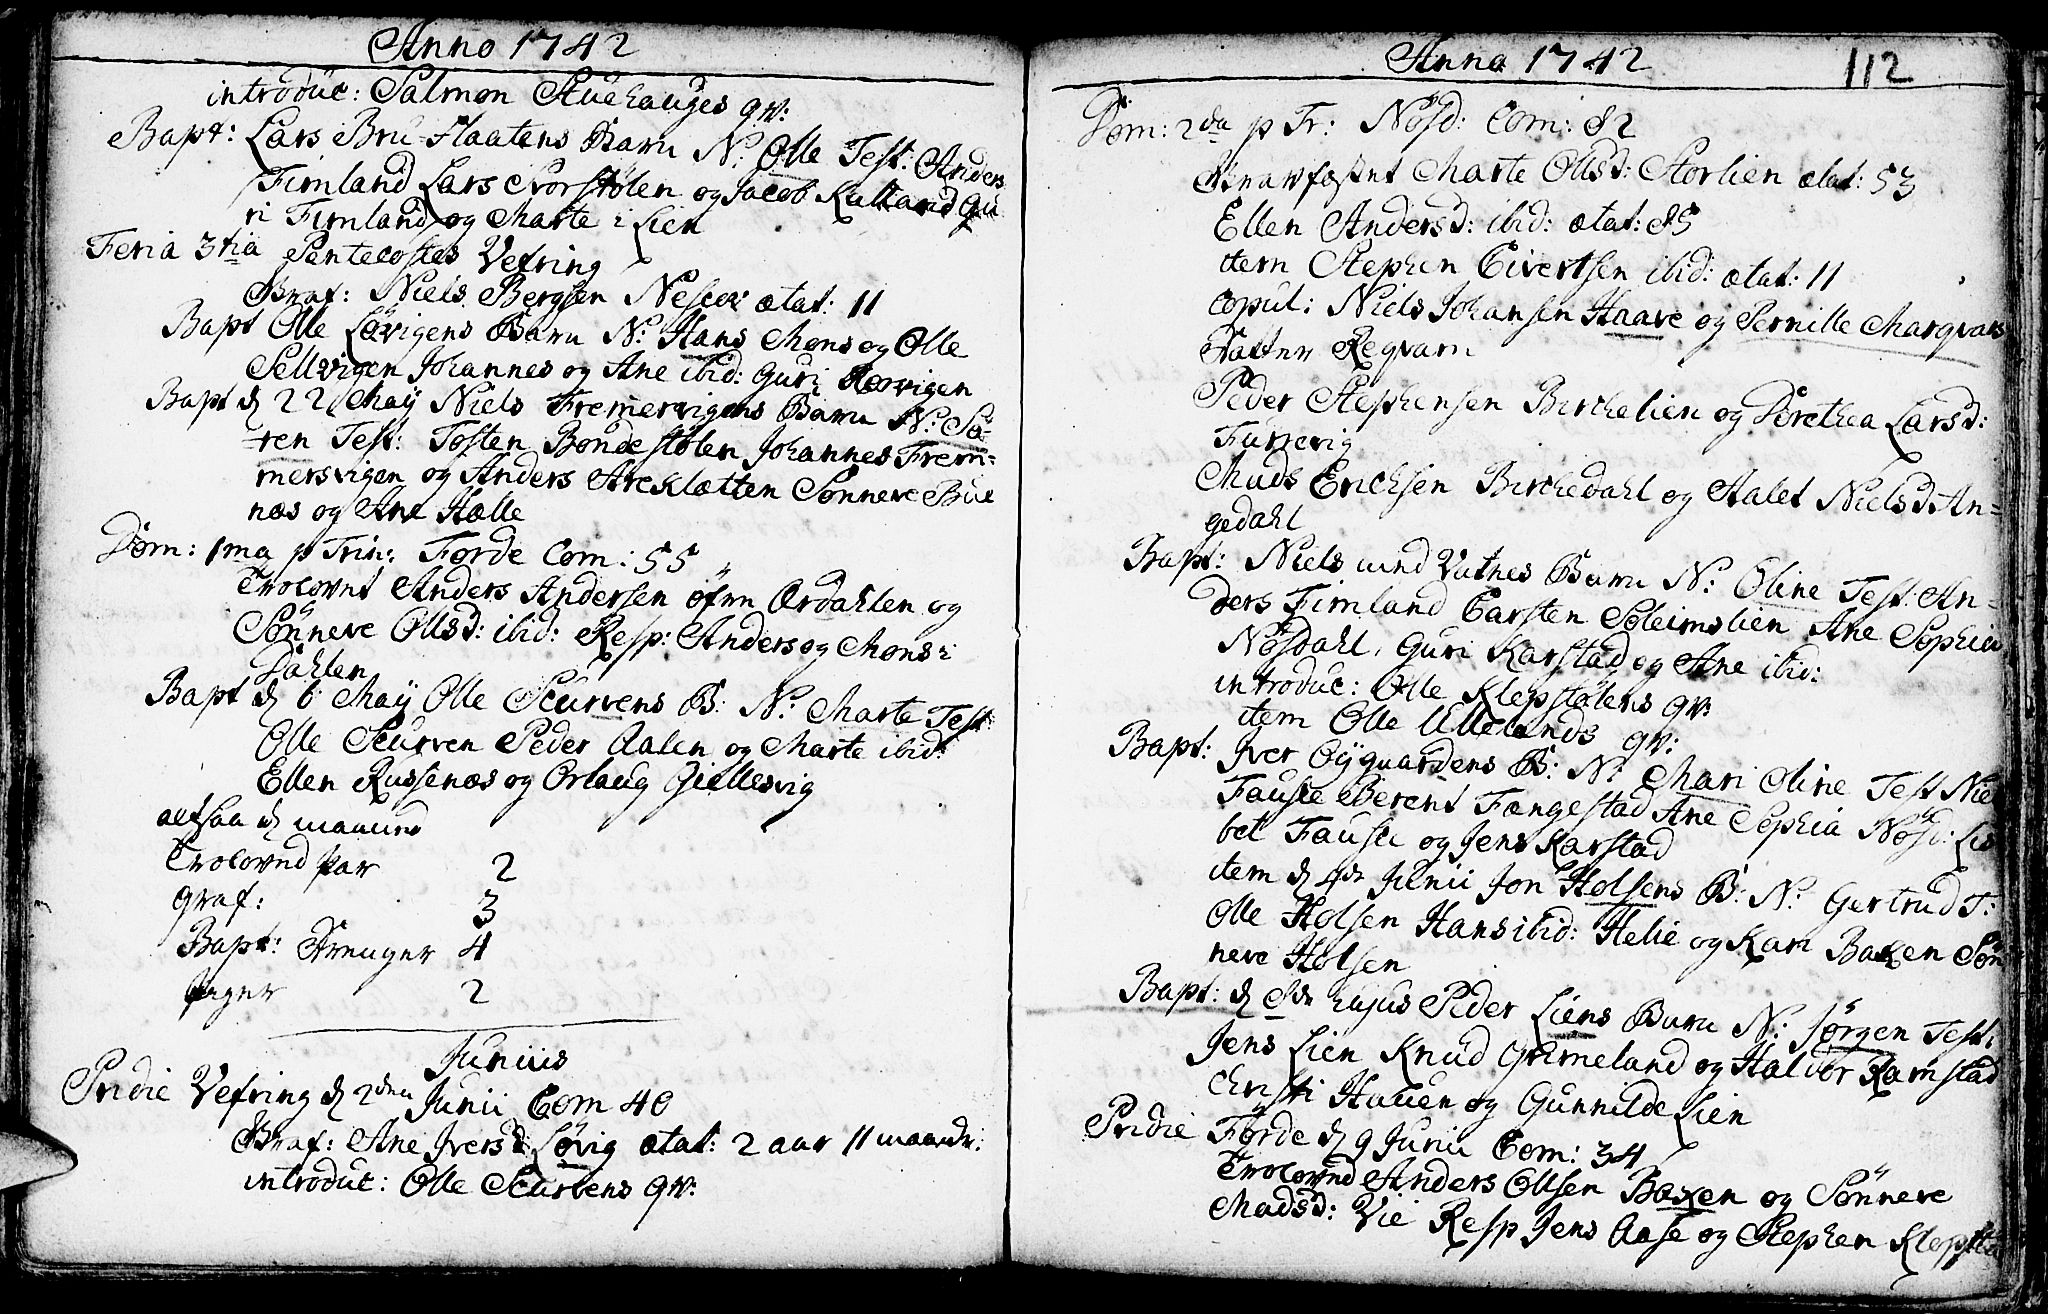 Anno 1742
introduc: Salmon Stuehauges qv:
Bapt: Lars Bru-flaatens Barn N: Olle Test: Anders
Fimland Lars Norstølen og Jacob Kulland Gu
ri Fimland og Marte i Lien
Feria 3tia Pentecostes Vefring
Graf: Niels Bergsen ætat: 11
Bapt Olle Løvigens Barn N: Hans Mons og Olle
Sellvigen Johannes og Ane ibid: Guri
Bapt d 22 Maij Niels Fremervigens Barn N: Sø-
ren Test: Tosten Bondestølen Johannes Frem=
mersvigen og Anders Areklætten Sønneve Bue
næs og Ane Hælle
Dom: 1ma p Trin: Førde Com: 55
Trolovet Anders Andersen øfre Ærdahlen og
Sønneve Ollsd: ibid: Resp: Anders og Mons i
Dahlen
Bapt d 6 Maij Olle Scurvens B: N: Marte Test:
Olle Scurven Peder Aalen og Marte ibid:
Ellen Russenæs og Orlaug Giellesvig
altsaa d maaned
Troloved par 2
Graf: 3
Bapt: Drenger 4
piger 2
Junius
Pridie Vefring d 2den Junii Com 40
Graf: Ane Iversd: Løvig ætat: 2 aar 11 maander:
introduc: Olle Scurvens qv:
Anno 1742 112
Dom: 2da p Tr: Nøsd: Com: 82
Marte Ollsd: Storlien ætat: 53
Ellen Andersd: ibid: ætat: 85
item Stephen Eivertsen ibid: ætat: 11
copul: Niels Johansen Haave og Pernille Marqvars
Datter Reqvam
Peder Stephensen Birchelien og Dorethea Larsd:
Furrevig
Mads Erichsen Birchedahl og Aalet Nielsd An=
gedahl
Bapt: Niels Vatnes Barn N: Oline Test: An=
ders Fimland Carsten Soleimslien Ane Sophia
Nøsdahl, Guri Karstad og Ane ibid:
introduc: Olle Klepstølens qv:
item Olle Ullelands qv:
Bapt: Iver Øÿguardens B: N: Mari Oline Test Niel
Fauske Berent Fængestad Ane Sophia Nøsd: Lis
bet Fauske og Jens Karstad
item d 4de Junii Jon Holsens B: N: Gertrud T:
Olle Holsen Hans ibid: Helie og Kari Baxen Søn
neve Holsen
Bapt: d 8de hujus Peder Liens Barn N: Jørgen Test:
Jens Lien Knud Grimeland og Haldor Ramstad
Christi Hauen og Gunnilde Lien
Pridie Førde d 9 Junii Com: 34
Troloved Anders Ollsen Baxen og Sønneve
Madsd: Vie Resp Jens Aase og Stephen Klepstø